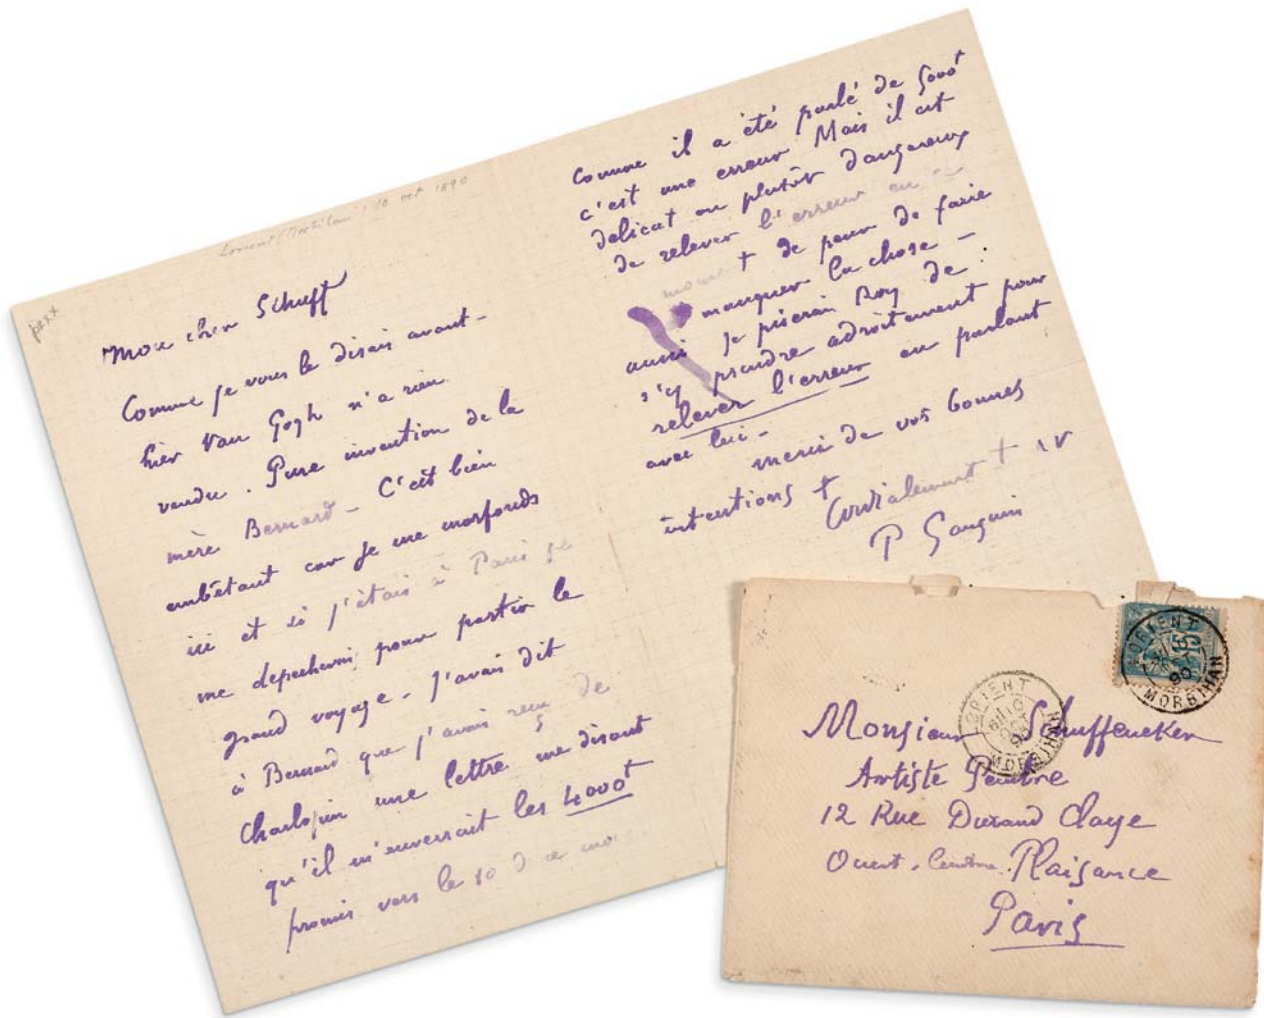 Lorient / Morbihan, 10 oct 1890
Mon cher Schuff
Comme je vous le disais avant-
hier Van Gogh n'a rien
vendu. Pure invention de la
mère Bernard - C'est bien
embêtant car je me morfonds
ici et si j'étais à Paris je
me depecherais pour partir le
grand voyage - J'avais dit
à Bernard que j'avais reçu de
Charlopin une lettre me disant
qu'il m'enverrait les 4000f
promis vers le 10 de ce mois
Comme il a été parlé de 5000f
c'est une erreur Mais il est
delicat ou plutôt dangereux
de relever l'erreur en ce
moment de peur de faire
manquer la chose -
aussi je prierai Roy de
s'y prendre adroitement pour
relever l'erreur en parlant
avec lui -
merci de vos bonnes
intentions +
Cordialement + à v
P Gauguin
LORIENT
15
90
MORBIHAN
LORIENT
MORBIHAN
Monsieur Schuffenecker
Artiste Peintre
12 Rue Durand Claye
Ouest-Ceinture Plaisance
Paris